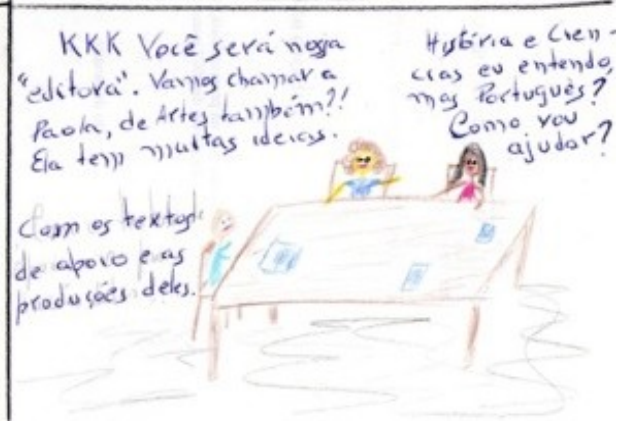 KKK Você será nossa
"editora". Vamos chamar a
Paola, de Artes também?!
Ela tem muitas ideias.
História e Ciên-
cias eu entendo,
mas Português?
Como vou
ajudar?
Com os textos
de apoio e as
produções deles.